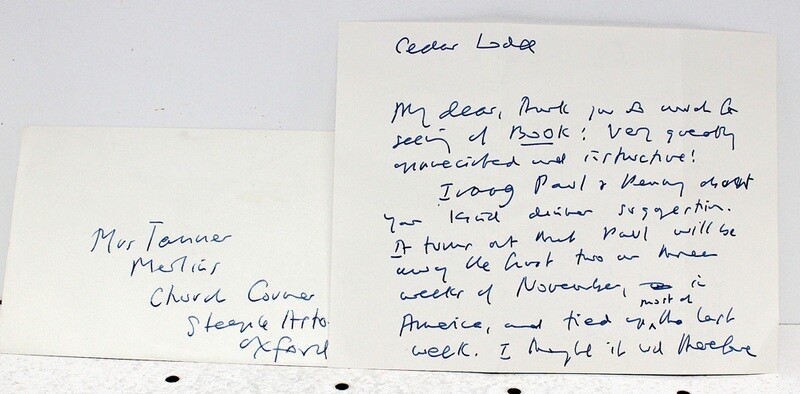 Mrs Tanner
Merlins
Church Corner
Steeple Asto
Oxford
Cedar Lodge
My dear, thank you so much for
seeing of BOOK! Very greatly
appreciated and instructive!
I rang Paul & Penny about
your kind dinner suggestion.
It turns out that Paul will be
away the first two or three
weeks of November, in
America, and tied up most of the last
week. I thought it wd therefore